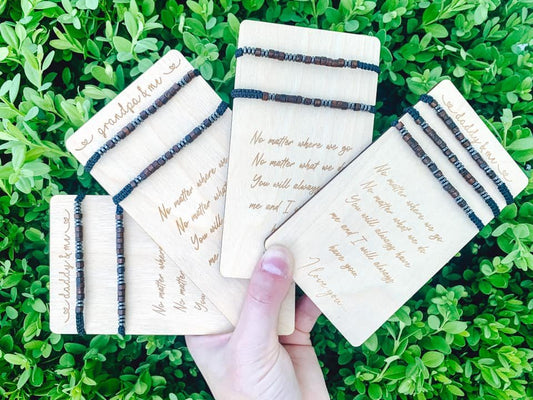 daddy & me
No matter
No matter
You
grandpa & me
No matter where
No matter what
You will
No matter where we go
No matter what we do
You will always
me and I
daddy & me
No matter where we go
No matter what we do
You will always have
me and I will always
have you.
I love you.